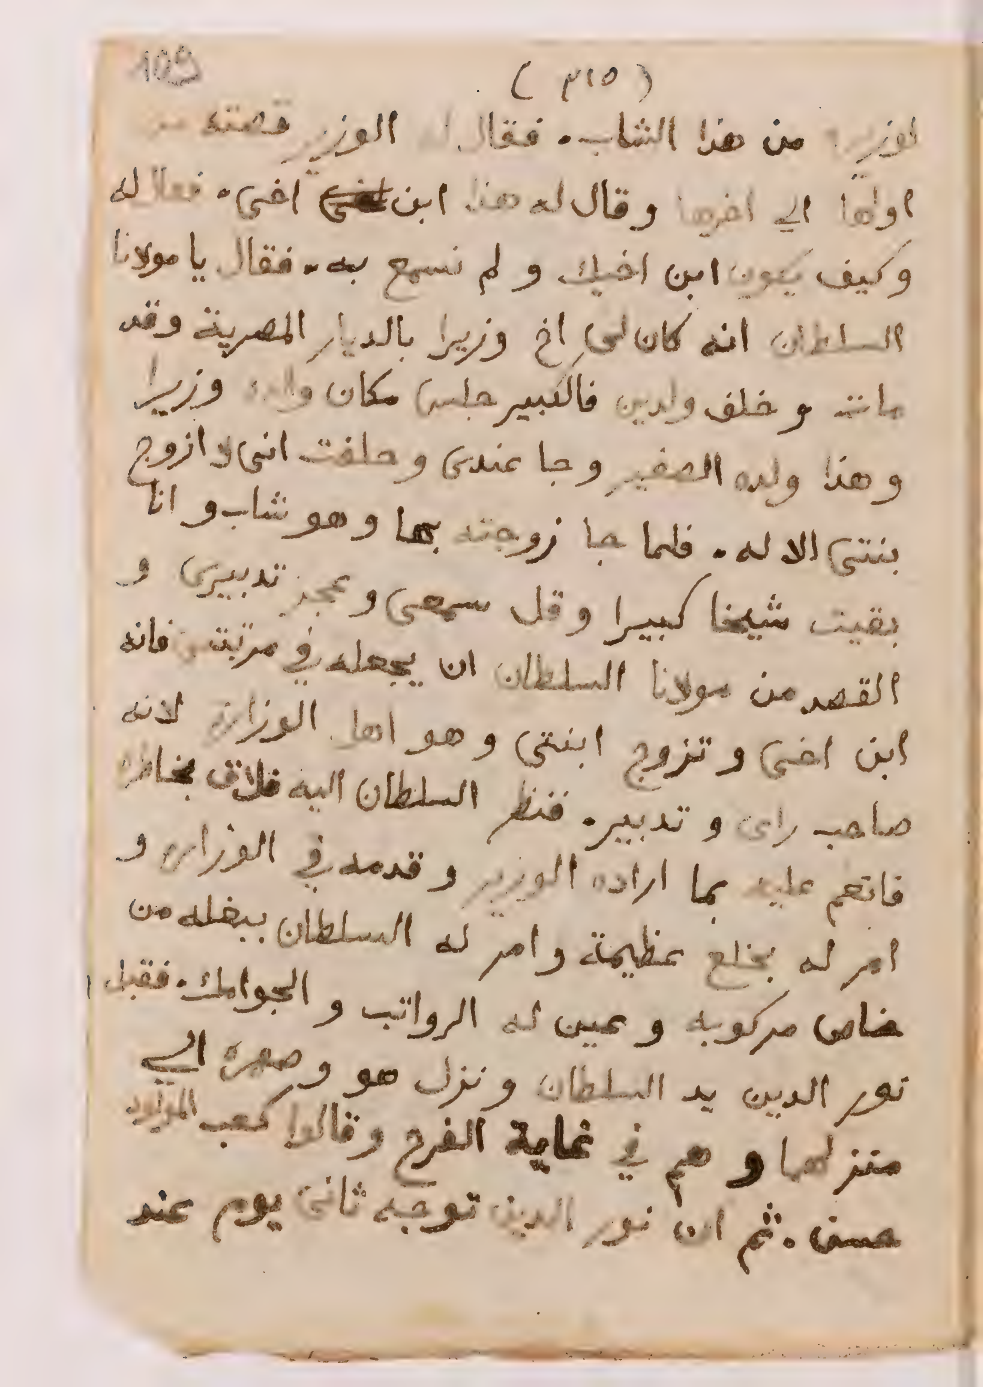 109
(٣١٥)
لوزيره من هذا الشاب. فقال له الوزير قصته من
اولها الى اخرها وقال له هذا ابن اخى. فقال له
وكيف يكون ابن اخيك و لم نسمع به. فقال يا مولانا
السلطان انه كان لى اخ وزيرا بالديار المصرية وقد
مات و خلف ولدين فالكبير جلس مكان والده وزيرا
وهذا ولده الصغير وجا عندى وحلفت انى لا ازوج
بنتى الا له. فلما جا زوجته بها وهو شاب و انا
بقيت شيخا كبيرا وقل سمعى وعجز تدبيرى و
القصد من مولانا السلطان ان يجعله في مرتبتى فانه
ابن اخى و تزوج ابنتى وهو اهل الوزارة لانه
صاحب راى و تدبير. فنظر السلطان اليه فلاق بخاطره
فانعم عليه بما اراده الوزير وقدمه في الوزاره و
امر له بخلع عظيمة وامر له السلطان ببغله من
خاص مركوبه وعين له الرواتب و الجوامك. فقبل
نور الدين يد السلطان ونزل هو وصهره الى
منزلهما وهم في غاية الفرح وقالوا كعب المولود
حسن. ثم ان نور الدين توجه ثانى يوم عند